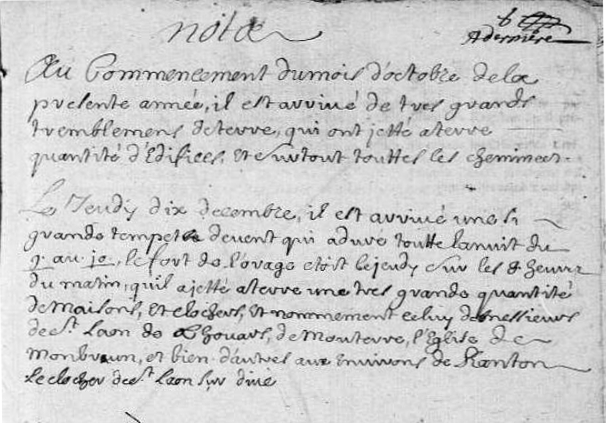 nota
A dernière
Au Commencement du mois d'octobre de la
presente année, il est arrivé de tres grands
tremblemens de terre, qui ont jetté a terre
quantité d'Edifices, Et surtout touttes les cheminees.
Le Jeudy dix decembre, il est arrivé une si
grande tempete de vent qui a duré toutte la nuit du
9. au 10, le fort de l'orage etoit le jeudy sur les 8 heures
du matin, qu'il a jetté a terre une tres grande quantité
de Maisons, Et clochers, Et nommement celuy de messieurs
de St. Laon de Thouars, de Monterre, l'Eglise de
Monbrun, et bien d'autres aux Environs de Ranton
Le clocher de St. Laon sur dive